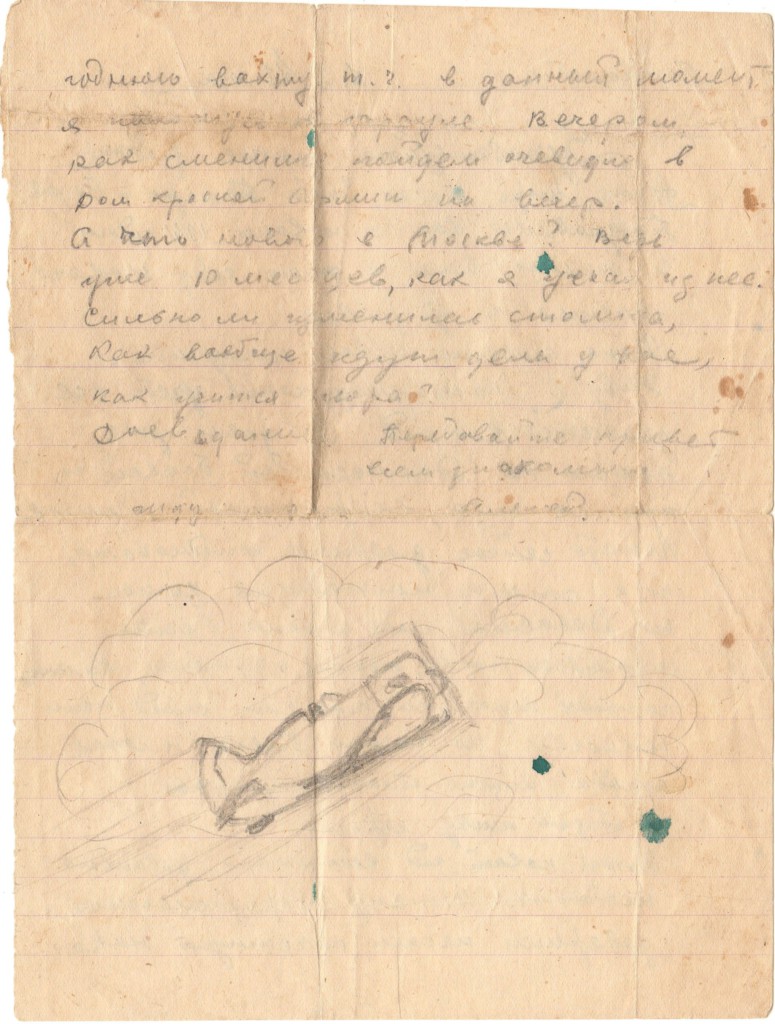 годнюю вахту т.ч. в данный момент
я в карауле. Вечером,
как сменимся пойдем очевидно в
дом красной армии на вечер.
А что нового в Москве? Ведь
уже 10 месяцев, как я уехал из нее.
Сильно ли изменилась столица,
как вообще идут дела у вас,
как учится
До свидания. Передавайте привет
всем знакомым
жду